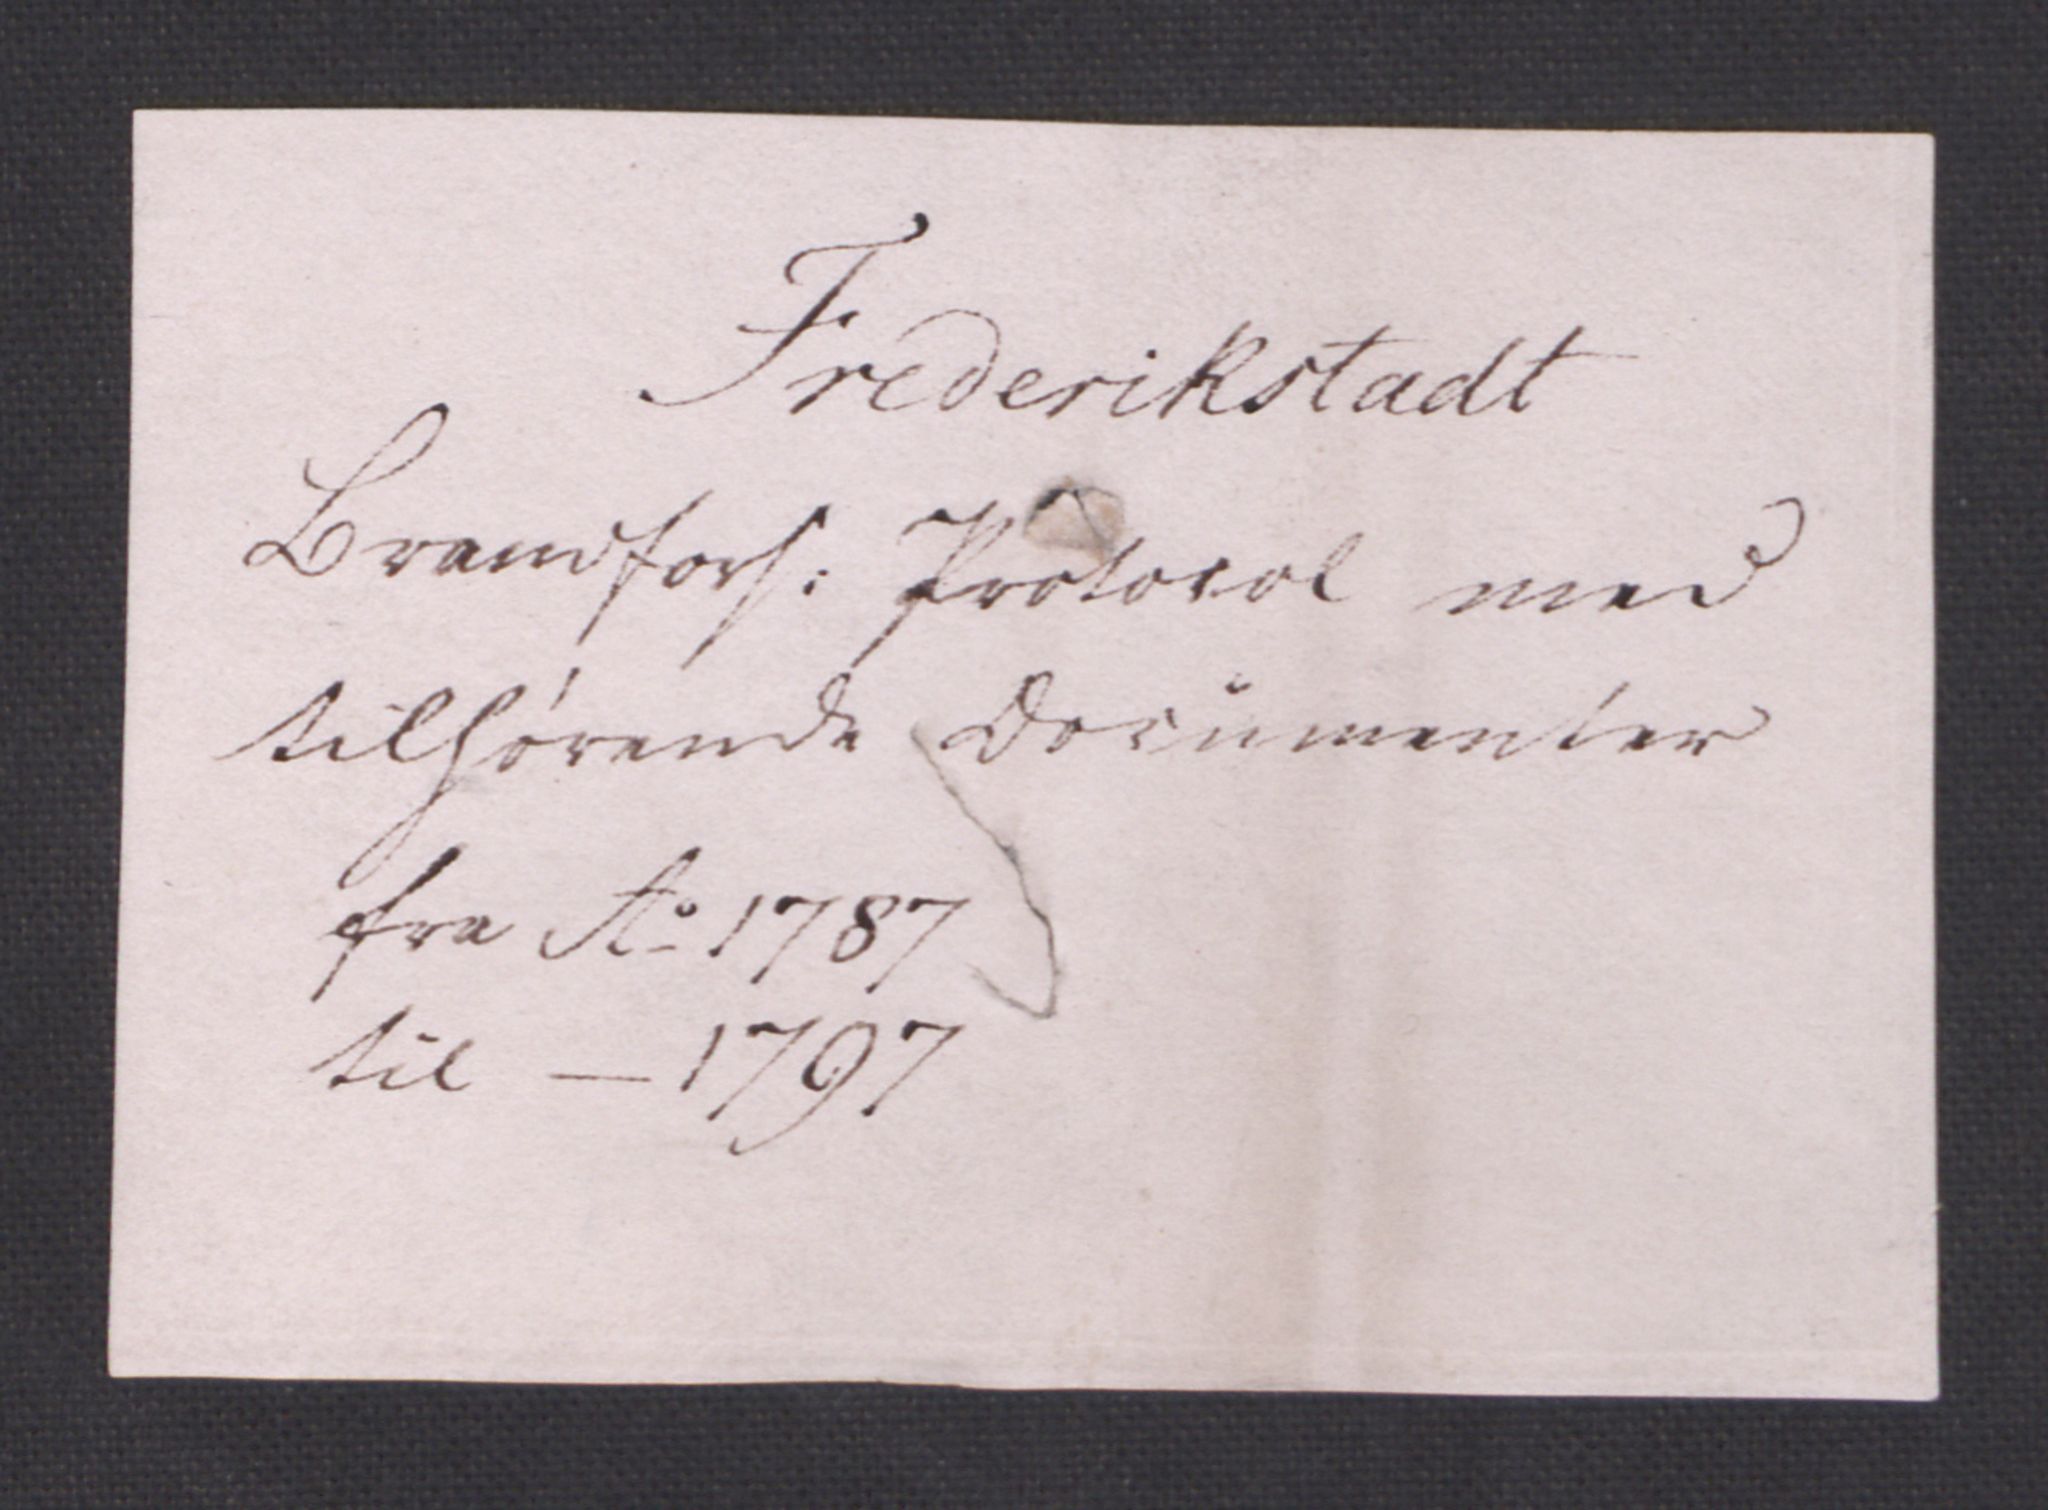 Frederikstadt
Brandfors: Protocol med
tilhørende Documenter
fra Aº 1787
til — 1797